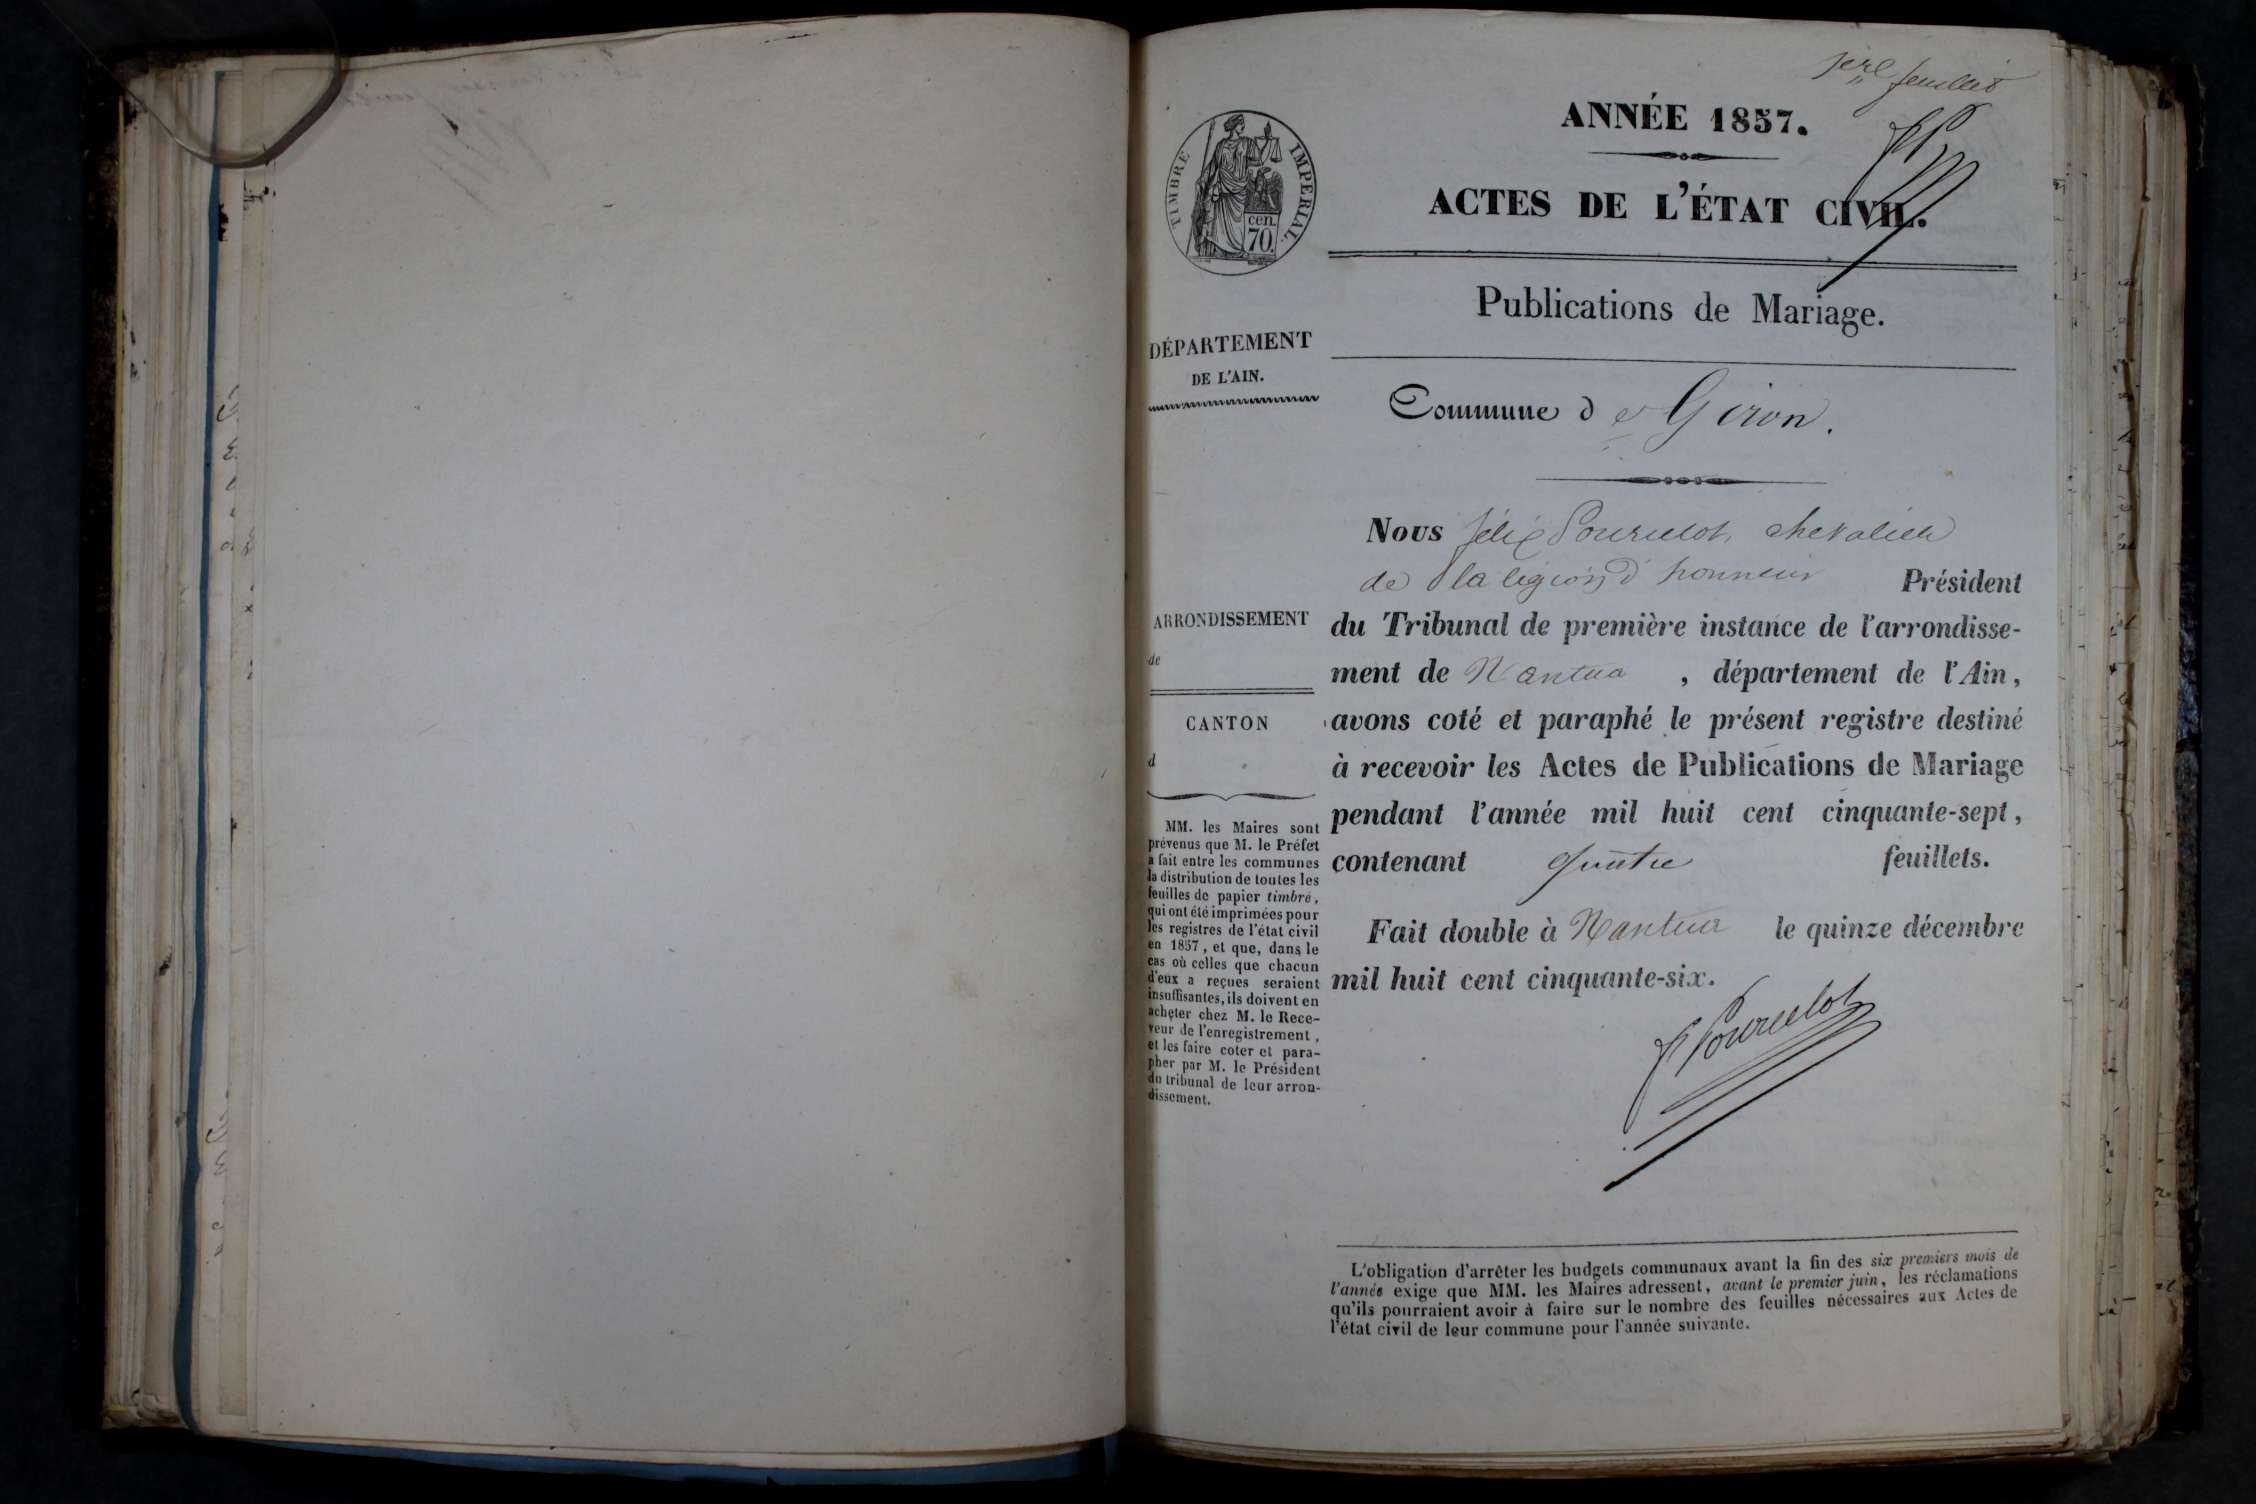 1ere feuillet
ANNÉE 1857.
TIMBRE IMPERIAL.
cen.
70.
ACTES DE L'ÉTAT CIVIL.
Publications de Mariage.
DÉPARTEMENT
DE L'AIN.
Commune de Giron.
Nous félix Pourcelot, chevalier
de la légion d'honneur Président
du Tribunal de première instance de l'arrondisse-
ment de Nantua, département de l'Ain,
avons coté et paraphé le présent registre destiné
à recevoir les Actes de Publications de Mariage
pendant l'année mil huit cent cinquante-sept,
contenant quatre feuillets.
Fait double à Nantua le quinze décembre
mil huit cent cinquante-six.
f Pourcelot
ARRONDISSEMENT
de
CANTON
d
MM. les Maires sont
prévenus que M. le Préfet
a fait entre les communes
la distribution de toutes les
feuilles de papier timbré,
qui ont été imprimées pour
les registres de l'état civil
en 1857, et que, dans le
cas où celles que chacun
d'eux a reçues seraient
insuffisantes, ils doivent en
acheter chez M. le Rece-
veur de l'enregistrement,
et les faire coter et para-
pher par M. le Président
du tribunal de leur arron-
dissement.
L'obligation d'arrêter les budgets communaux avant la fin des six premiers mois de
l'année exige que MM. les Maires adressent, avant le premier juin, les réclamations
qu'ils pourraient avoir à faire sur le nombre des feuilles nécessaires aux Actes de
l'état civil de leur commune pour l'année suivante.